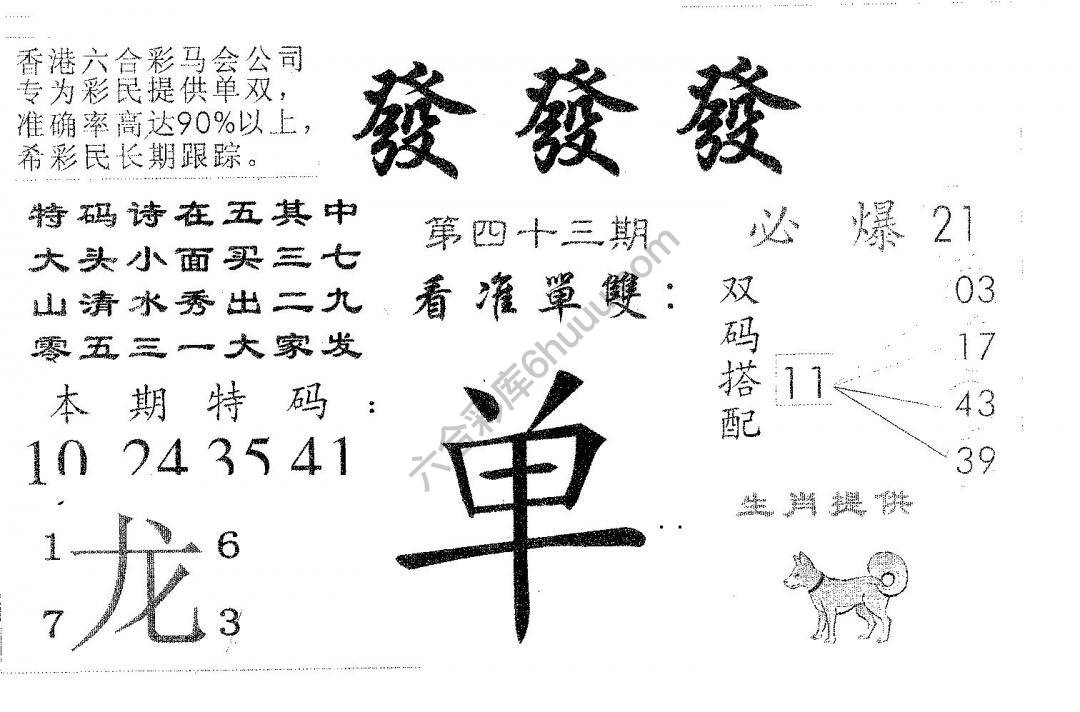 香港六合彩马会公司
专为彩民提供单双，
准确率高达90%以上，
希彩民长期跟踪。
發 發 發
特码诗在五其中
大头小面买三七
山清水秀出二九
零五三一大家发
第四十三期
看准單雙：
单
必爆21
双码搭配
11
03
17
43
39
本期特码：
10 24 35 41
1 龙 6
7 3
生肖提供
六合彩库6huuu.com